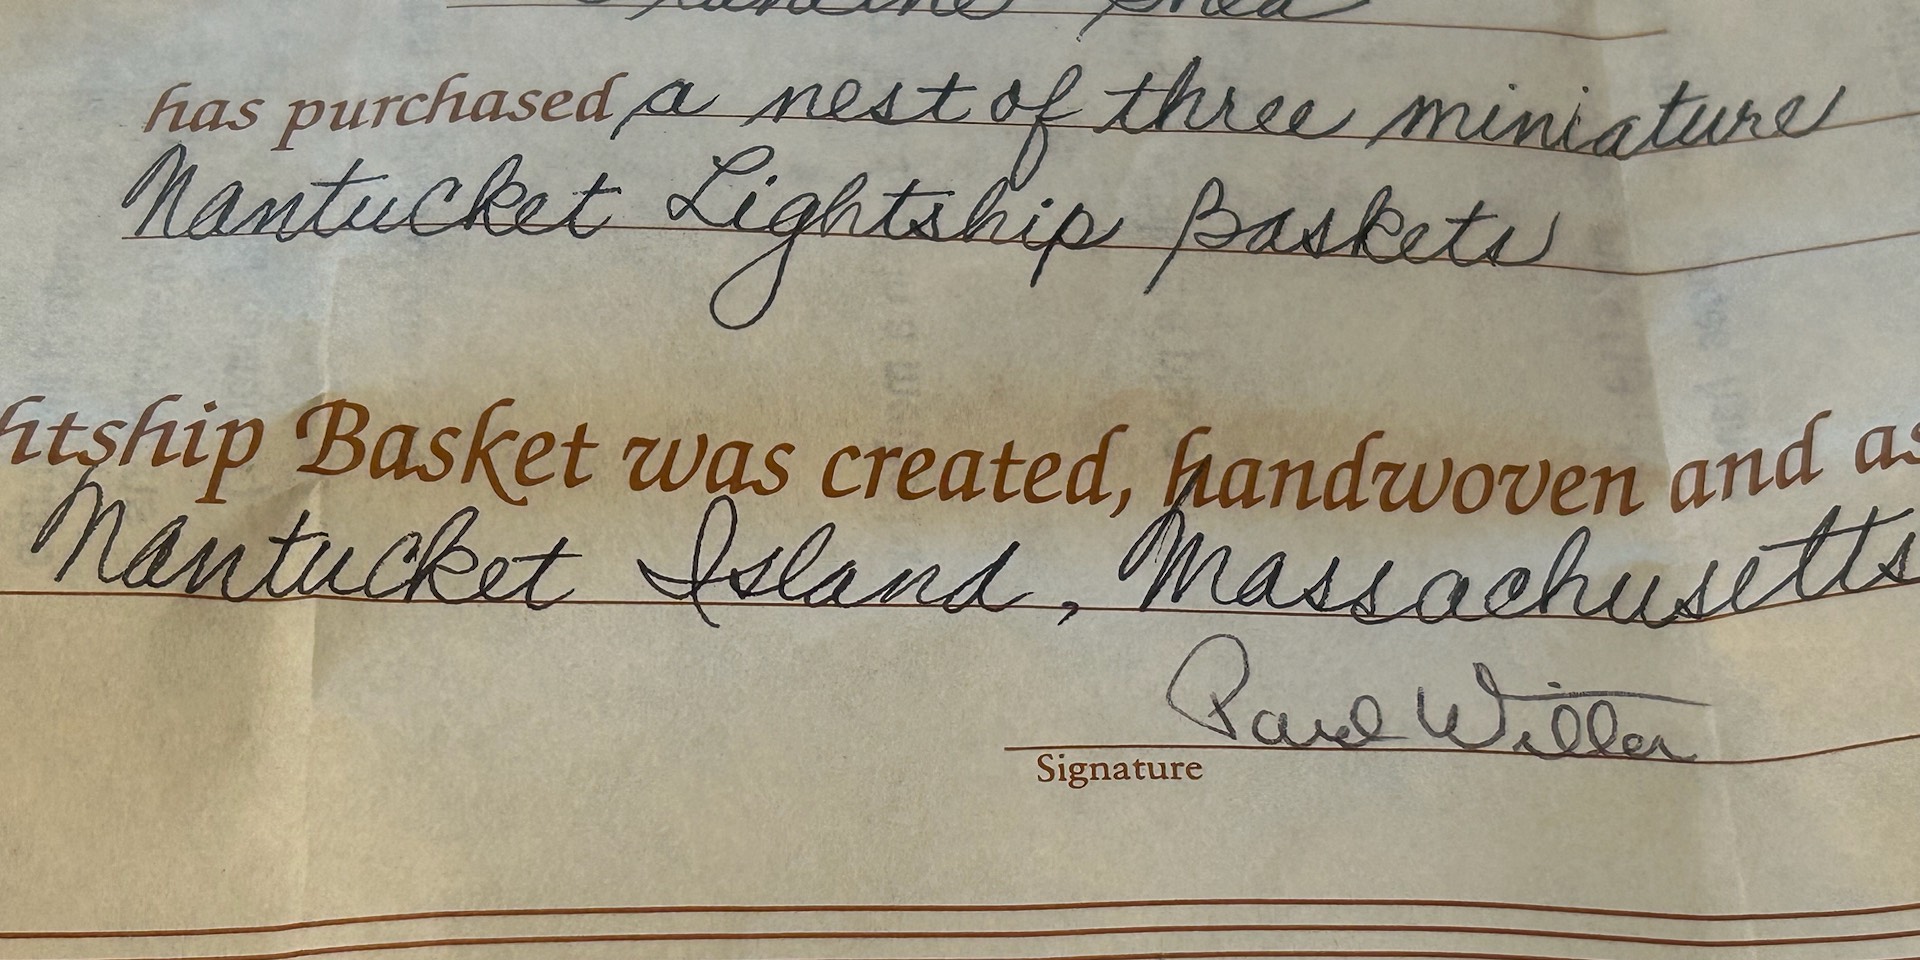 has purchased a nest of three miniature
Nantucket Lightship Baskets
htship Basket was created, handwoven and as
Nantucket Island, Massachusetts
Paul Willer
Signature